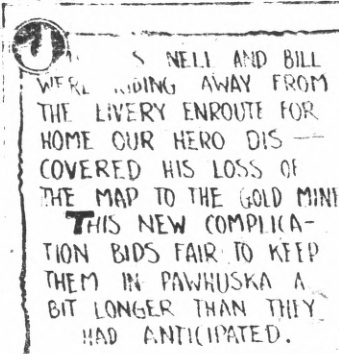 NELL AND BILL
WERE RIDING AWAY FROM
THE LIVERY ENROUTE FOR
HOME OUR HERO DIS —
COVERED HIS LOSS OF
THE MAP TO THE GOLD MINE
THIS NEW COMPLICA-
TION BIDS FAIR TO KEEP
THEM IN PAWHUSKA A
BIT LONGER THAN THEY
HAD ANTICIPATED.